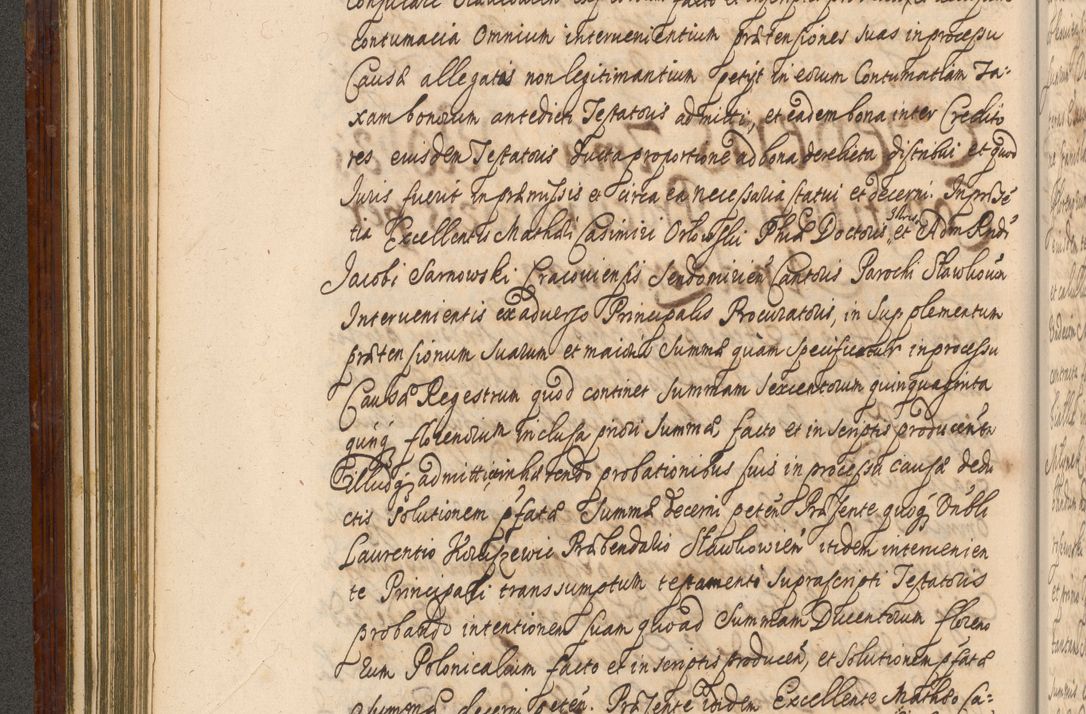 contumacia Omnium intervenientium prætensiones suas in processu
Causæ allegatas non legitimantium petijt in eorum Contumatiam Ta-
xam bonorum antedicti Testatoris admitti, et eadem bona inter Credito
res eiusdem Testatoris Juxta proportionē ad bona derelicta distribui et quod
Juris fuerit in præmissis et circa ea necessaria statui et decerni. In præsē
tia Excellentis Mathæi Casimiri Orłowski Phiæ Doctoris, et Adm Rndi
Jacobi Sarnowski Cracoviensis Sendomirien Cantoris Parochi Sławkovien
Intervenientis ex adverso Principalis Procuratoris, in Supplementum
prætensionum suarum et maioris Summæ quam specificatur in processu
Causæ Regestrum quod continet Summam Sexcentorum quinquaginta
quinq florenorum inclusa priori Summæ facto et in scriptis producentis
Illudq admitti, inhærendo probationibus suis in processu causæ dedu
ctis Solutionem pfatæ Summæ decerni peten Præsente quoq Vnbli
Laurentio Præbendario Sławkowien itidem intervenien
te Principali transsumptum testamenti suprascripti Testatoris
probando intentionem suam quoad Summam Ducentorum floreno
rum Polonicalium facto et in scriptis producen, et Solutionem pfatæ
Summæ decerni peten. Præsente ibidem Excellente Mathæo Ca-